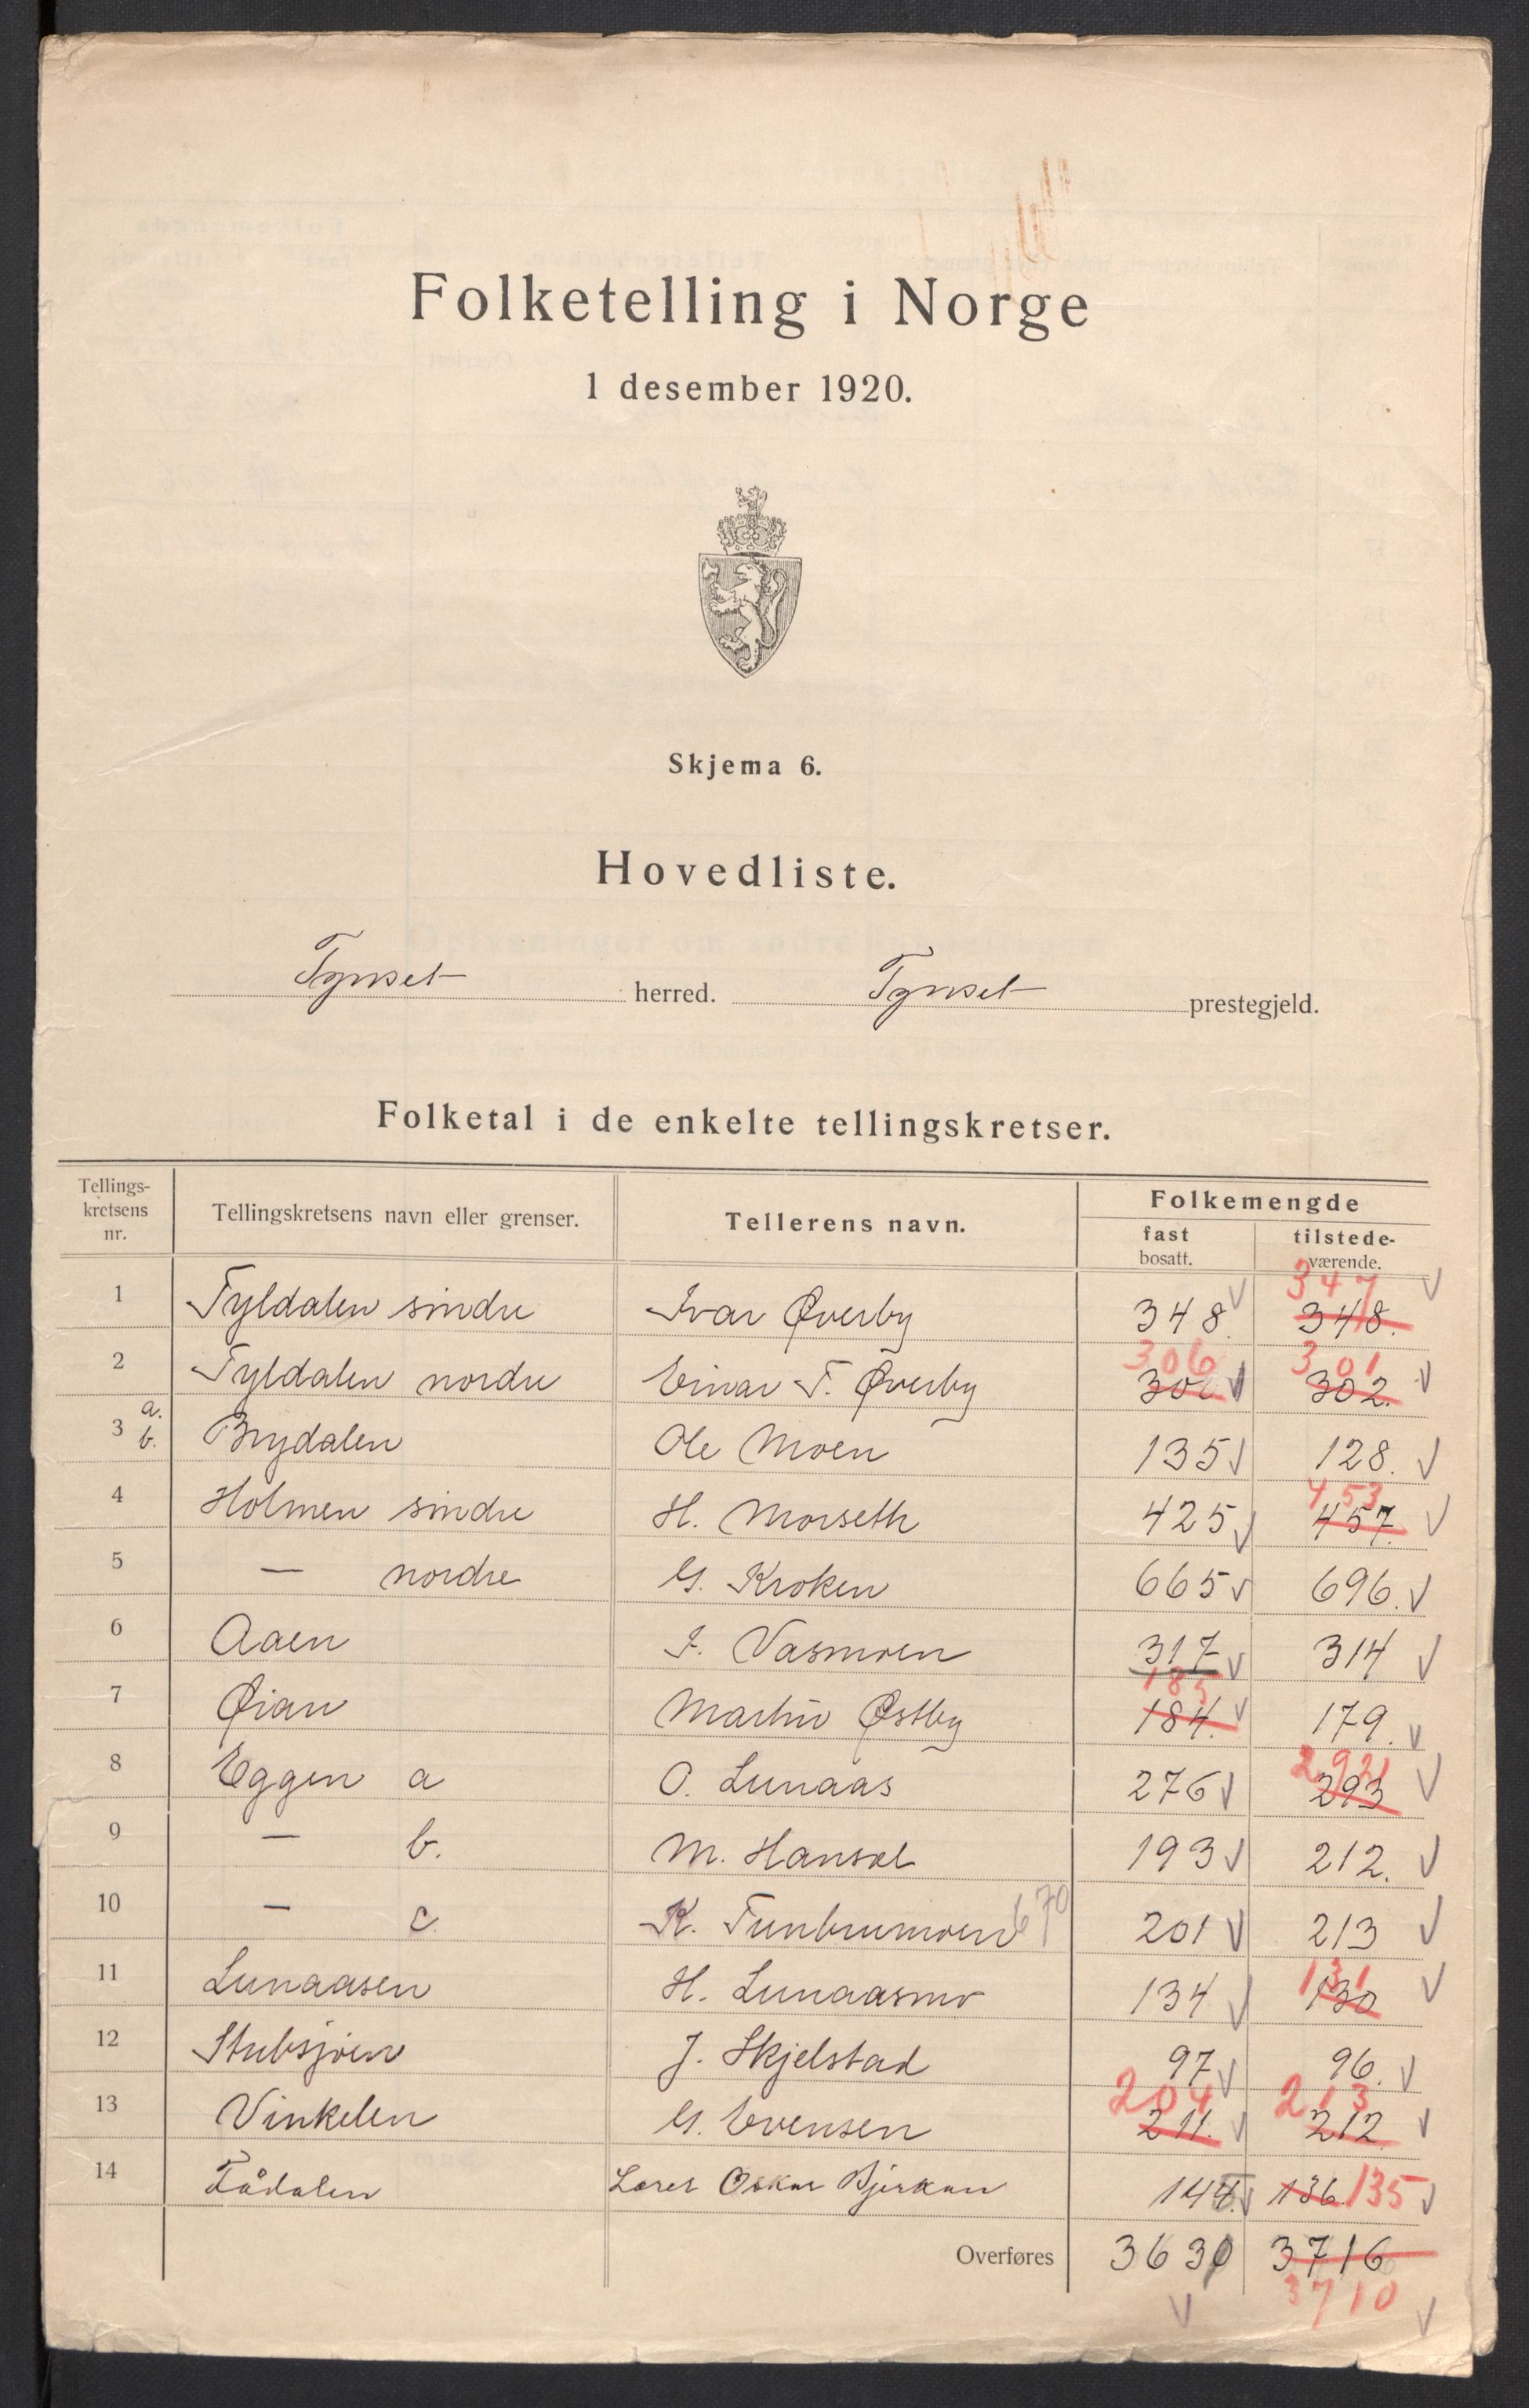 Folketelling i Norge
1 desember 1920.
Skjema 6.
Hovedliste.
Tynset herred. Tynset prestegjeld.
Folketal i de enkelte tellingskretser.
Tellings-kretsens nr. Tellingskretsens navn eller grenser. Tellerens navn. Folkemengde
fast bosatt. tilstede-værende.
347 √
1 Tyldalen sindre Ivar Øverby 348. √ 348.
306 301
2 Tyldalen nordre Einar T. Øverby √ 302. √
3 a. b. Brydalen Ole Moen 135 √ 128. √
453
4 Holmen sindre H. Morseth 425 √ 457. √
5 — nordre G. Kroken 665 √ 696. √
6 Aaen I. Vasmoen 317 √ 314 √
185
7 Øian Martin Østby 184. √ 179. √
292
8 Eggen a O. Lunaas 276 √ 293 √
9 — b. M. Hansæl 193 √ 212. √
10 — c. K. Tunbrumoen 670 201 √ 213 √
131
11 Lunaasen H. Lunaasmo 134 √ 130 √
12 Stubsjøen J. Skjelstad 97 √ 96. √
204 213
13 Vinkelen G. Evensen 211. √ 212. √
14 Fådalen Lærer Oskar Bjørkan 144. √ 136. 135 √
Overføres 3630 3716
√ 3710 √